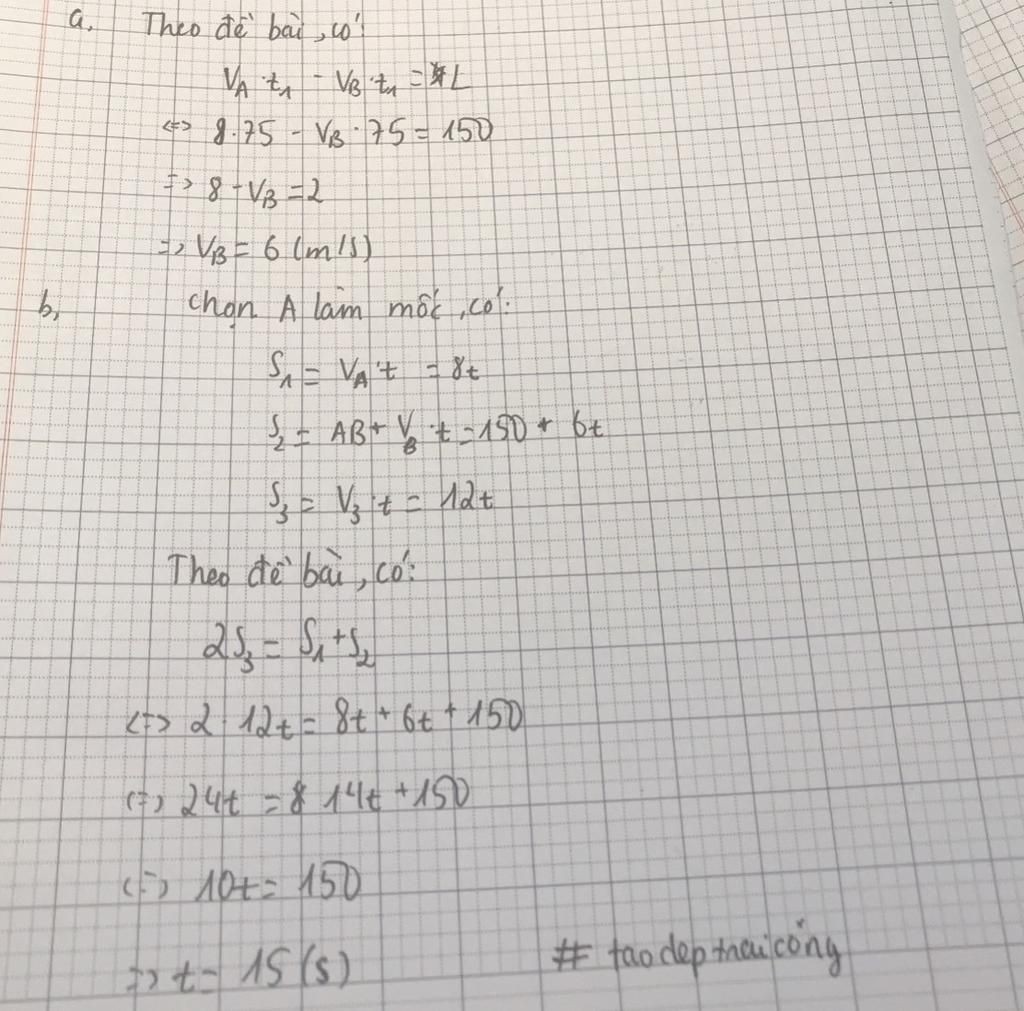 a, Theo đề bài, có:
V_A · t_1 - V_B · t_1 = L
<=> 8·75 - V_B · 75 = 150
=> 8 - V_B = 2
=> V_B = 6 (m/s)
b, chọn A làm mốc, có:
S_1 = V_A · t = 8t
S_2 = AB + V_B · t = 150 + 6t
S_3 = V_3 · t = 12t
Theo đề bài, có:
2S_3 = S_1 + S_2
<=> 2 · 12t = 8t + 6t + 150
<=> 24t = 14t + 150
<=> 10t = 150
=> t = 15 (s)
# taodeptraicống